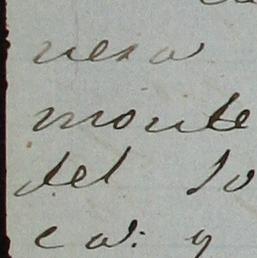 nera
monte
del So
ca: y